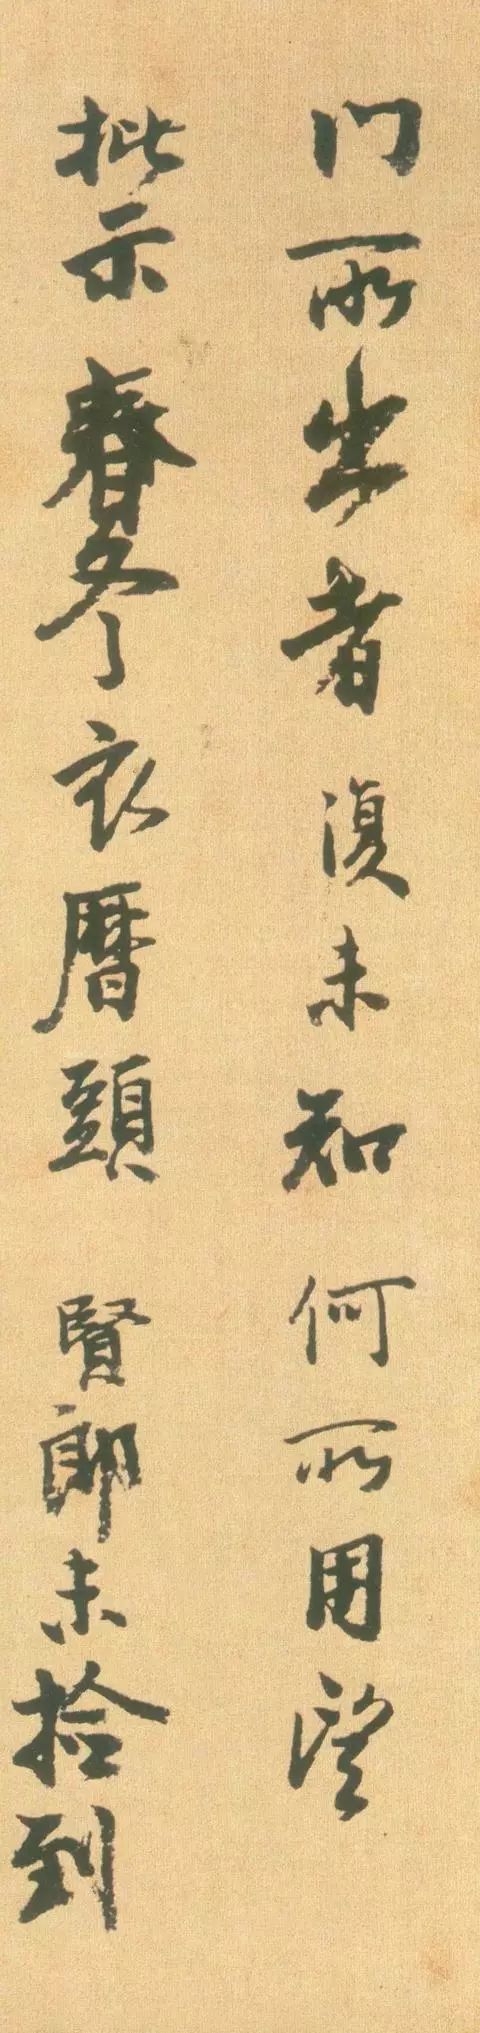 门所出者復未知何所用望
批示春冬衣曆頭賢郎未捡到